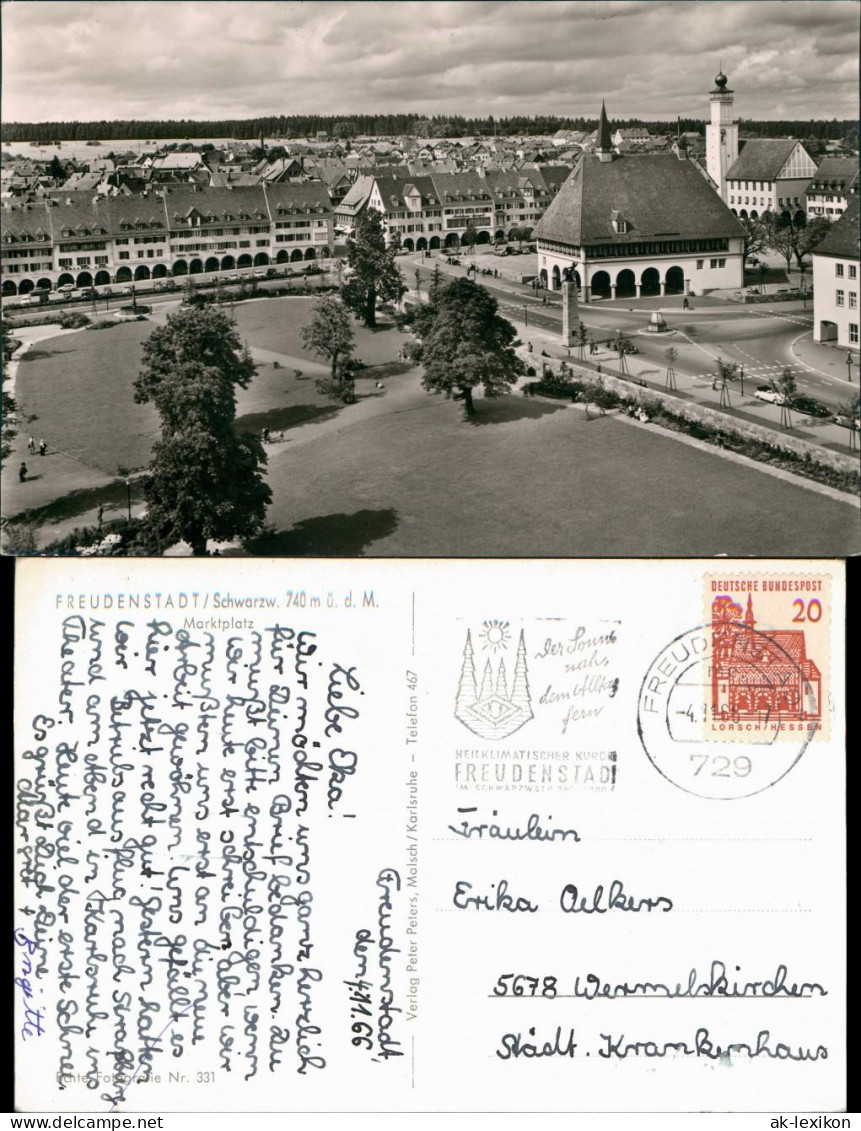 FREUDENSTADT/Schwarzw. 740 m ü. d. M.
Marktplatz
Freudenstadt,
den 4.11.66
Liebe Eka!
Wir möchten uns ganz herzlich
für Deinen Brief bedanken. Du
mußt bitte entschuldigen, wenn
wir heute erst schreiben, aber wir
mußten uns erst an die neue
Arbeit gewöhnen. Uns gefällt es
hier jetzt recht gut. Gestern hatten
wir Betriebsausflug nach Straßburg
und am Abend in Karlsruhe ins
Theater. Heute fiel der erste Schnee.
Es grüßt Dich Deine
Margret +
Brigitte
Echte Fotografie Nr. 331
Verlag Peter Peters, Malsch/Karlsruhe – Telefon 467
Der Sonne
nah
dem Alltag
fern
HEILKLIMATISCHER KURORT
FREUDENSTADT
IM SCHWARZWALD
FREUDENSTADT
-4.11.66
729
DEUTSCHE BUNDESPOST
20
LORSCH/HESSEN
Fräulein
Erika Oelkers
5678 Wermelskirchen
Städt. Krankenhaus
ak-lexikon.com